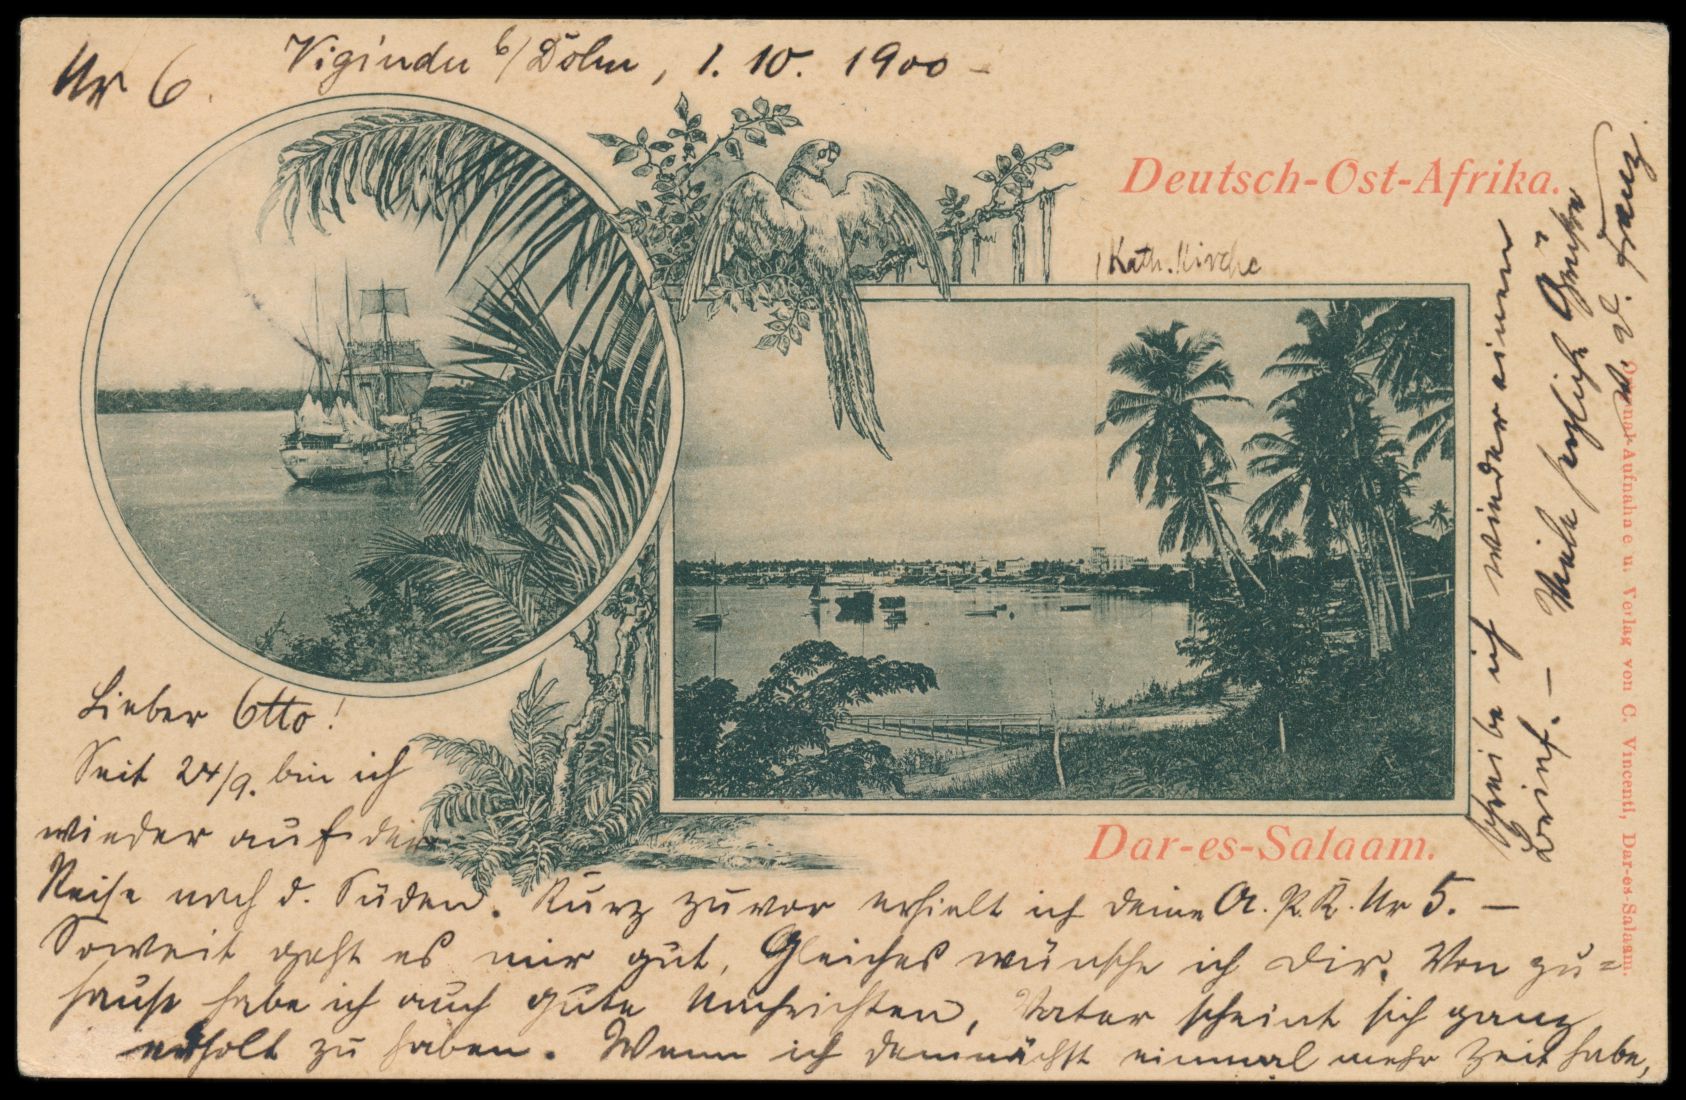 Nr 6.
1. 10. 1900 –
Deutsch-Ost-Afrika.
Kath. Kirche
Lieber Otto!
Seit 24/9. bin ich
wieder auf der
Reise nach d. Süden. Kurz zuvor erhielt ich deine A. P. K. Nr 5. –
Soweit geht es mir gut, Gleiches wünsche ich Dir. Von zu=
hause habe ich auch gute Nachrichten, Vater scheint sich ganz
erholt zu haben. Wenn ich demnächst einmal mehr Zeit habe,
schreibe ich wieder einen
Brief. – Viele herzliche Grüße
Franz.
Dar-es-Salaam.
Original-Aufnahme u. Verlag von C. Vincenti, Dar-es-Salaam.